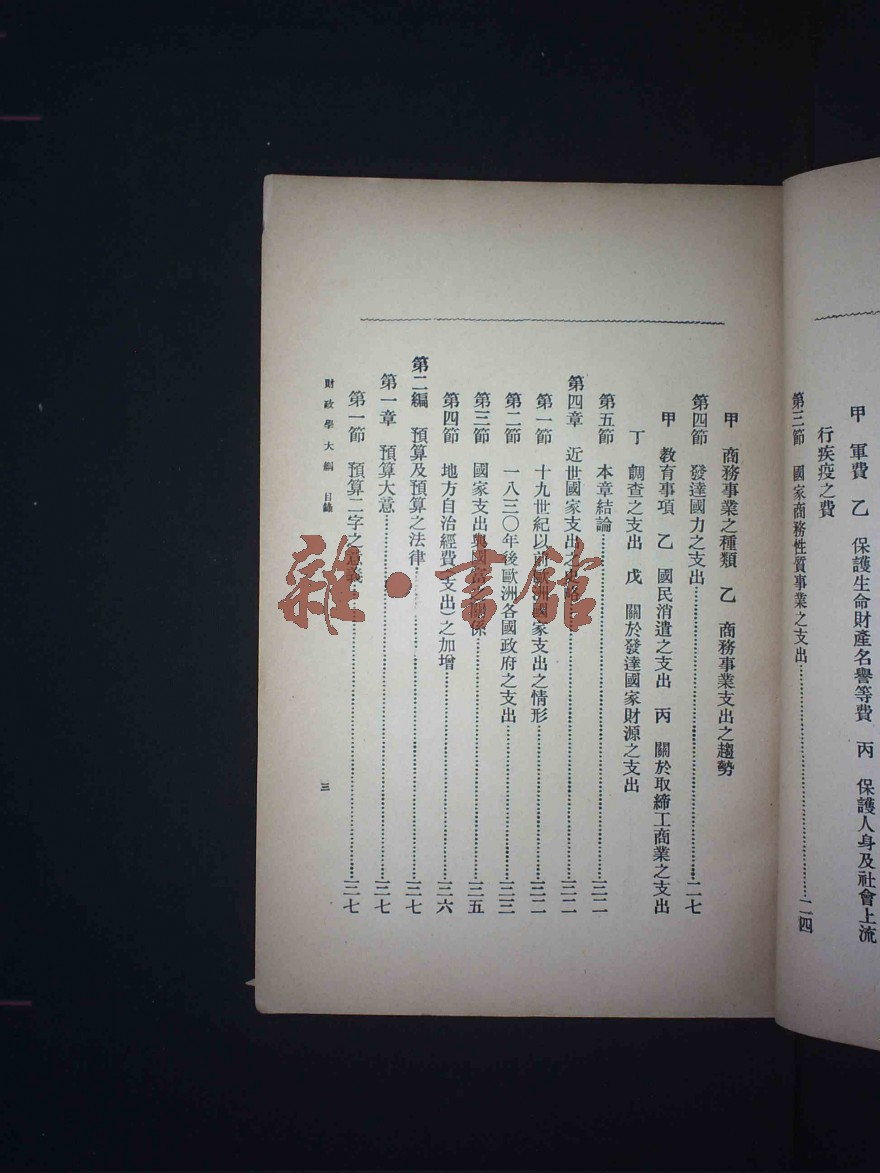 甲　軍費　乙　保護生命財產名譽等費　丙　保護人身及社會上流
行疾疫之費
第三節　國家商務性質事業之支出…………二四
甲　商務事業之種類　乙　商務事業支出之趨勢
第四節　發達國力之支出…………二七
甲　教育事項　乙　國民消遣之支出　丙　關於取締工商業之支出
丁　調查之支出　戊　關於發達國家財源之支出
第五節　本章結論…………三二
第四章　近世國家支出之史略…………三二
第一節　十九世紀以前歐洲國家支出之情形…………三二
第二節　一八三〇年後歐洲各國政府之支出…………三三
第三節　國家支出與國富之關係…………三五
第四節　地方自治經費（支出）之加增…………三六
第二編　預算及預算之法律…………三七
第一章　預算大意…………三七
第一節　預算二字之意義…………三七
財政學大綱　目錄
三
雜·書館